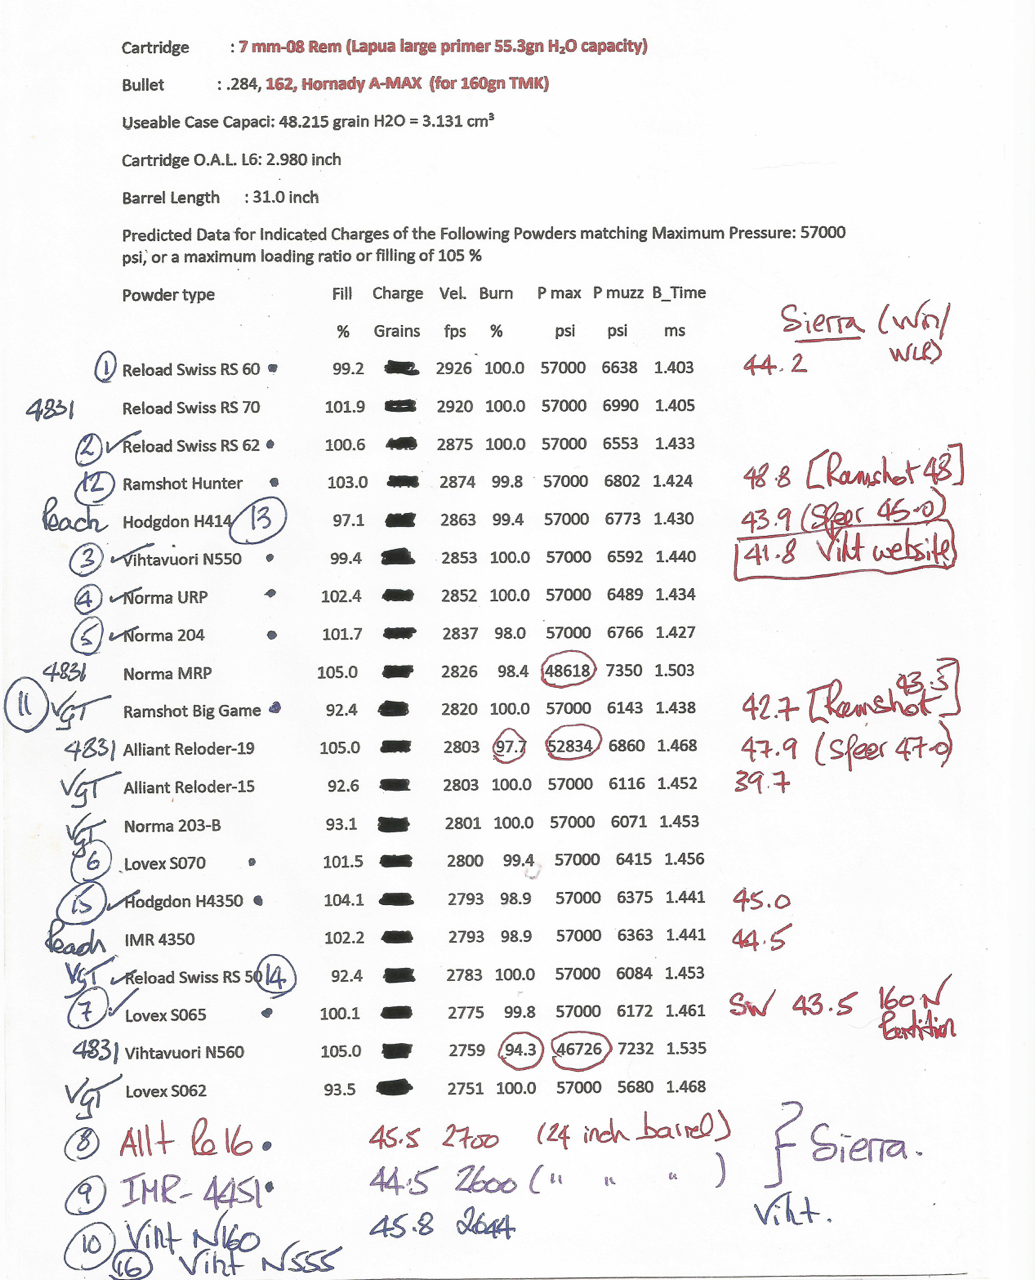 Cartridge : 7 mm-08 Rem (Lapua large primer 55.3gn H₂O capacity)
Bullet : .284, 162, Hornady A-MAX (for 160gn TMK)
Useable Case Capaci: 48.215 grain H2O = 3.131 cm³
Cartridge O.A.L. L6: 2.980 inch
Barrel Length : 31.0 inch
Predicted Data for Indicated Charges of the Following Powders matching Maximum Pressure: 57000
psi, or a maximum loading ratio or filling of 105 %
Powder type Fill Charge Vel. Burn P max P muzz B_Time
% Grains fps % psi psi ms
Sierra (Win/
WLR)
1 Reload Swiss RS 60 99.2 2926 100.0 57000 6638 1.403 44.2
4831 Reload Swiss RS 70 101.9 2920 100.0 57000 6990 1.405
2 ✓ Reload Swiss RS 62 100.6 2875 100.0 57000 6553 1.433
12 Ramshot Hunter 103.0 2874 99.8 57000 6802 1.424 48.8 [Ramshot 48]
Hodgdon H414 13 97.1 2863 99.4 57000 6773 1.430 43.9 (Speer 45.0)
3 ✓ Vihtavuori N550 99.4 2853 100.0 57000 6592 1.440 41.8 Viht website
4 ✓ Norma URP 102.4 2852 100.0 57000 6489 1.434
5 ✓ Norma 204 101.7 2837 98.0 57000 6766 1.427
4831 Norma MRP 105.0 2826 98.4 48618 7350 1.503
11 VGT Ramshot Big Game 92.4 2820 100.0 57000 6143 1.438 42.7 [Ramshot 43.5]
4831 Alliant Reloder-19 105.0 2803 97.7 52834 6860 1.468 47.9 (Speer 47.0)
VGT Alliant Reloder-15 92.6 2803 100.0 57000 6116 1.452 39.7
VGT Norma 203-B 93.1 2801 100.0 57000 6071 1.453
6 Lovex S070 101.5 2800 99.4 57000 6415 1.456
15 ✓ Hodgdon H4350 104.1 2793 98.9 57000 6375 1.441 45.0
IMR 4350 102.2 2793 98.9 57000 6363 1.441 44.5
VGT ✓ Reload Swiss RS 50 14 92.4 2783 100.0 57000 6084 1.453
7 ✓ Lovex S065 100.1 2775 99.8 57000 6172 1.461 SW 43.5 160 N
Partition
4831 Vihtavuori N560 105.0 2759 94.3 46726 7232 1.535
VGT Lovex S062 93.5 2751 100.0 57000 5680 1.468
8 Allt Re16 45.5 2700 (24 inch barrel) } Sierra.
9 IMR-4451 44.5 2600 (" " ")
10 Viht N160 45.8 2644 Viht.
16 Viht N555